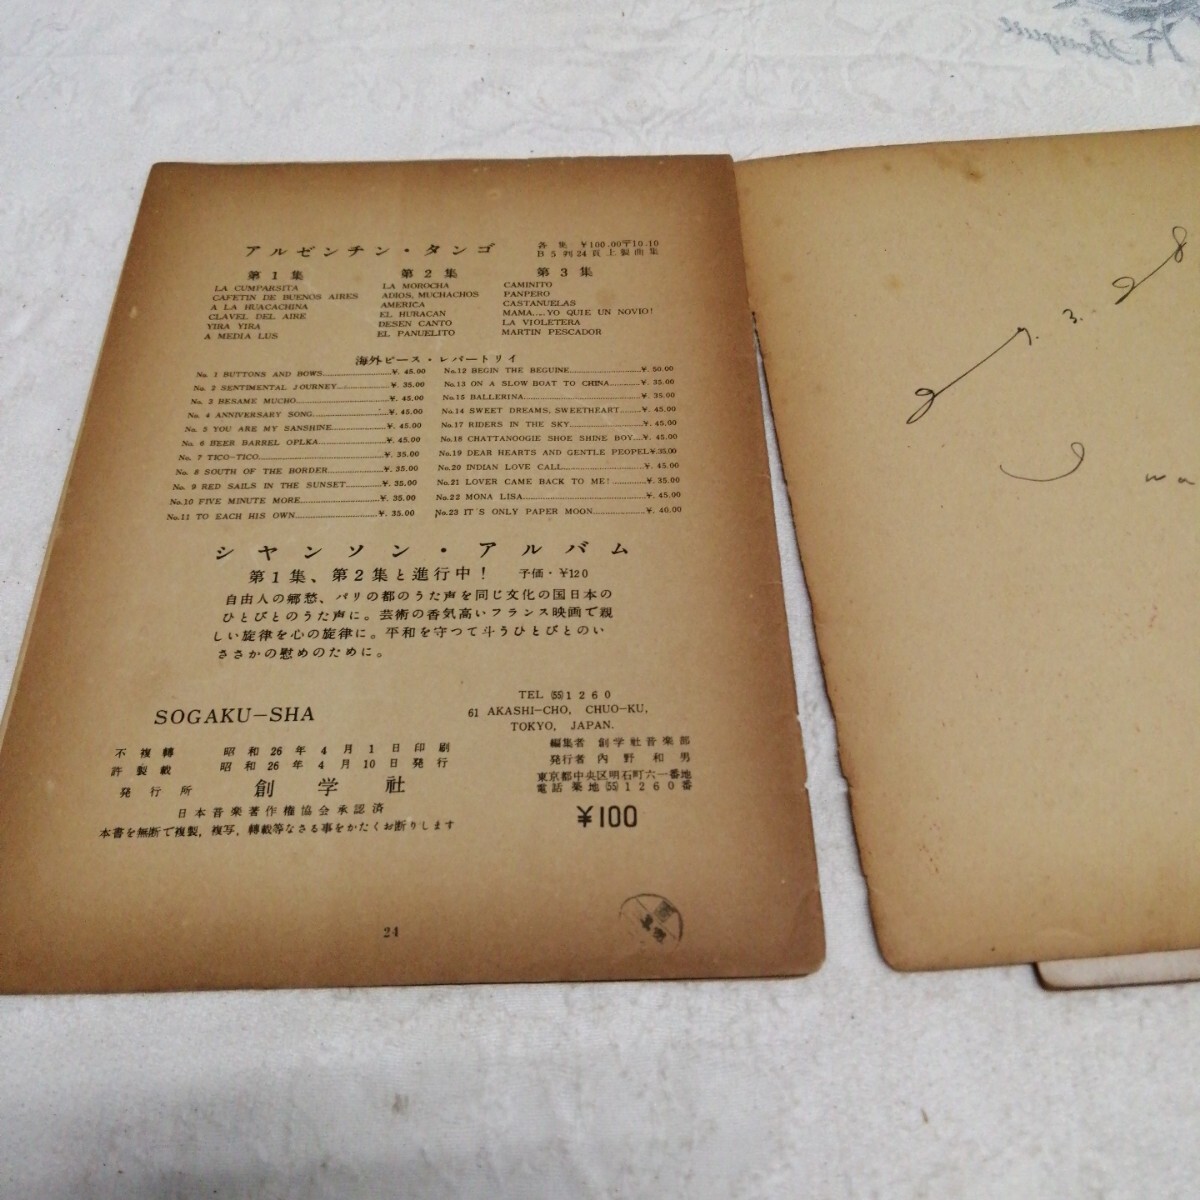 アルゼンチン・タンゴ
各集 ¥100.00〒10.10
B5列24頁上製曲集
第1集
LA CUMPARSITA
CAFETIN DE BUENOS AIRES
A LA HUACACHINA
CLAVEL DEL AIRE
YIRA YIRA
A MEDIA LUS
第2集
LA MOROCHA
ADIOS, MUCHACHOS
AMERICA
EL HURACAN
DESEN CANTO
EL PANUELITO
第3集
CAMINITO
PANPERO
CASTANUELAS
MAMA....YO QUIE UN NOVIO!
LA VIOLETERA
MARTIN PESCADOR
海外ピース・レパートリイ
No. 1 BUTTONS AND BOWS ¥. 45.00
No. 2 SENTIMENTAL JOURNEY ¥. 35.00
No. 3 BESAME MUCHO ¥. 45.00
No. 4 ANNIVERSARY SONG ¥. 45.00
No. 5 YOU ARE MY SANSHINE ¥. 45.00
No. 6 BEER BARREL OPLKA ¥. 45.00
No. 7 TICO-TICO ¥. 35.00
No. 8 SOUTH OF THE BORDER ¥. 35.00
No. 9 RED SAILS IN THE SUNSET ¥. 35.00
No.10 FIVE MINUTE MORE ¥. 35.00
No.11 TO EACH HIS OWN ¥. 35.00
No.12 BEGIN THE BEGUINE ¥. 50.00
No.13 ON A SLOW BOAT TO CHINA ¥. 35.00
No.15 BALLERINA ¥. 35.00
No.14 SWEET DREAMS, SWEETHEART ¥. 45.00
No.17 RIDERS IN THE SKY ¥. 45.00
No.18 CHATTANOOGIE SHOE SHINE BOY ¥. 45.00
No.19 DEAR HEARTS AND GENTLE PEOPEL ¥.35.00
No.20 INDIAN LOVE CALL ¥. 45.00
No.21 LOVER CAME BACK TO ME! ¥. 35.00
No.22 MONA LISA ¥. 45.00
No.23 IT'S ONLY PAPER MOON ¥. 40.00
シヤンソン・アルバム
第1集、第2集と進行中! 予価・¥120
自由人の郷愁、パリの都のうた声を同じ文化の国日本の
ひとびとのうた声に。芸術の香気高いフランス映画で親
しい旋律を心の旋律に。平和を守つて斗うひとびとのい
ささかの慰めのために。
SOGAKU-SHA
TEL (55)1260
61 AKASHI-CHO, CHUO-KU,
TOKYO, JAPAN.
不複轉
許製載
昭和26年4月1日印刷
昭和26年4月10日発行
発行所 創学社
日本音楽著作権協会承認済
本書を無断で複製,複写,轉載等なさる事をかたくお断りします
編集者 創学社音楽部
発行者 内野和男
東京都中央区明石町六一番地
電話築地(55)1260番
¥100
24